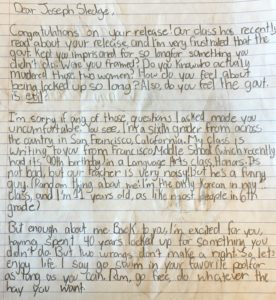 Dear Joseph Sledge,
Congratulations on your release! Our class has recently
read about your release, and I'm very frustrated that the
govt. kept you imprisoned for so long for something you
didn't do. Were you framed? Do you know who actually
murdered those two women? How do you feel about
being locked up so long? Also, do you feel the govt.
is evil?
I'm sorry if any of those questions I asked made you
uncomfortable. You see, I'm a sixth grader from across
the country in San Francisco, California. My class is
writing to you from Francisco Middle School (which recently
had its 90th birthday) in a Language Arts class, Honors. It's
not bad, but our teacher is very noisy, but he's a funny
guy. (Random thing about me: I'm the only Korean in my
class, and I'm 11 years old, as like most people in 6th
grade)
But enough about me. Back to you. I'm excited for you,
having spent 40 years locked up for something you
didn't do. But two wrongs don't make a right. So, let's
enjoy life. I say go swim in your favorite pool for
as long as you can. Run, go free, do whatever the
hay you want.